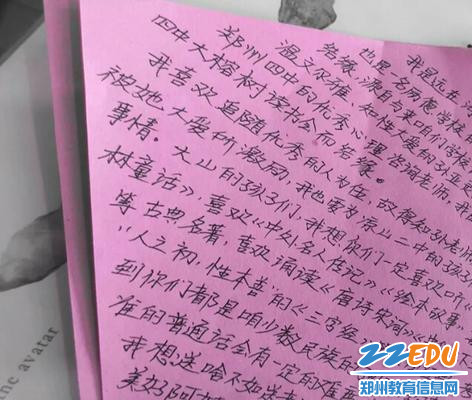 我虽远在
也是名历鹿学校
结缘,源自与来咱们学校
温文尔雅、女性大爱的孙亚
郑州四中的优秀心理咨询老师,我
四中大榕树读书会而结缘。
我喜欢追随优秀的人为伍,故得知孙老
被她大爱所激励,我也要为凉山二中的孩
事情。大山的孩子们,我想你们一定喜欢听
林童话》喜欢《中外名人传记》《绘本故事》
等古典名著,喜欢诵读《唐诗宋词》
“人之初,性本善”的《三字经
到你们都是咱少数民族的
准的普通话会有一定的难
我想送啥不如送
美好的
ne avatar
22EDU
郑州教育信息网